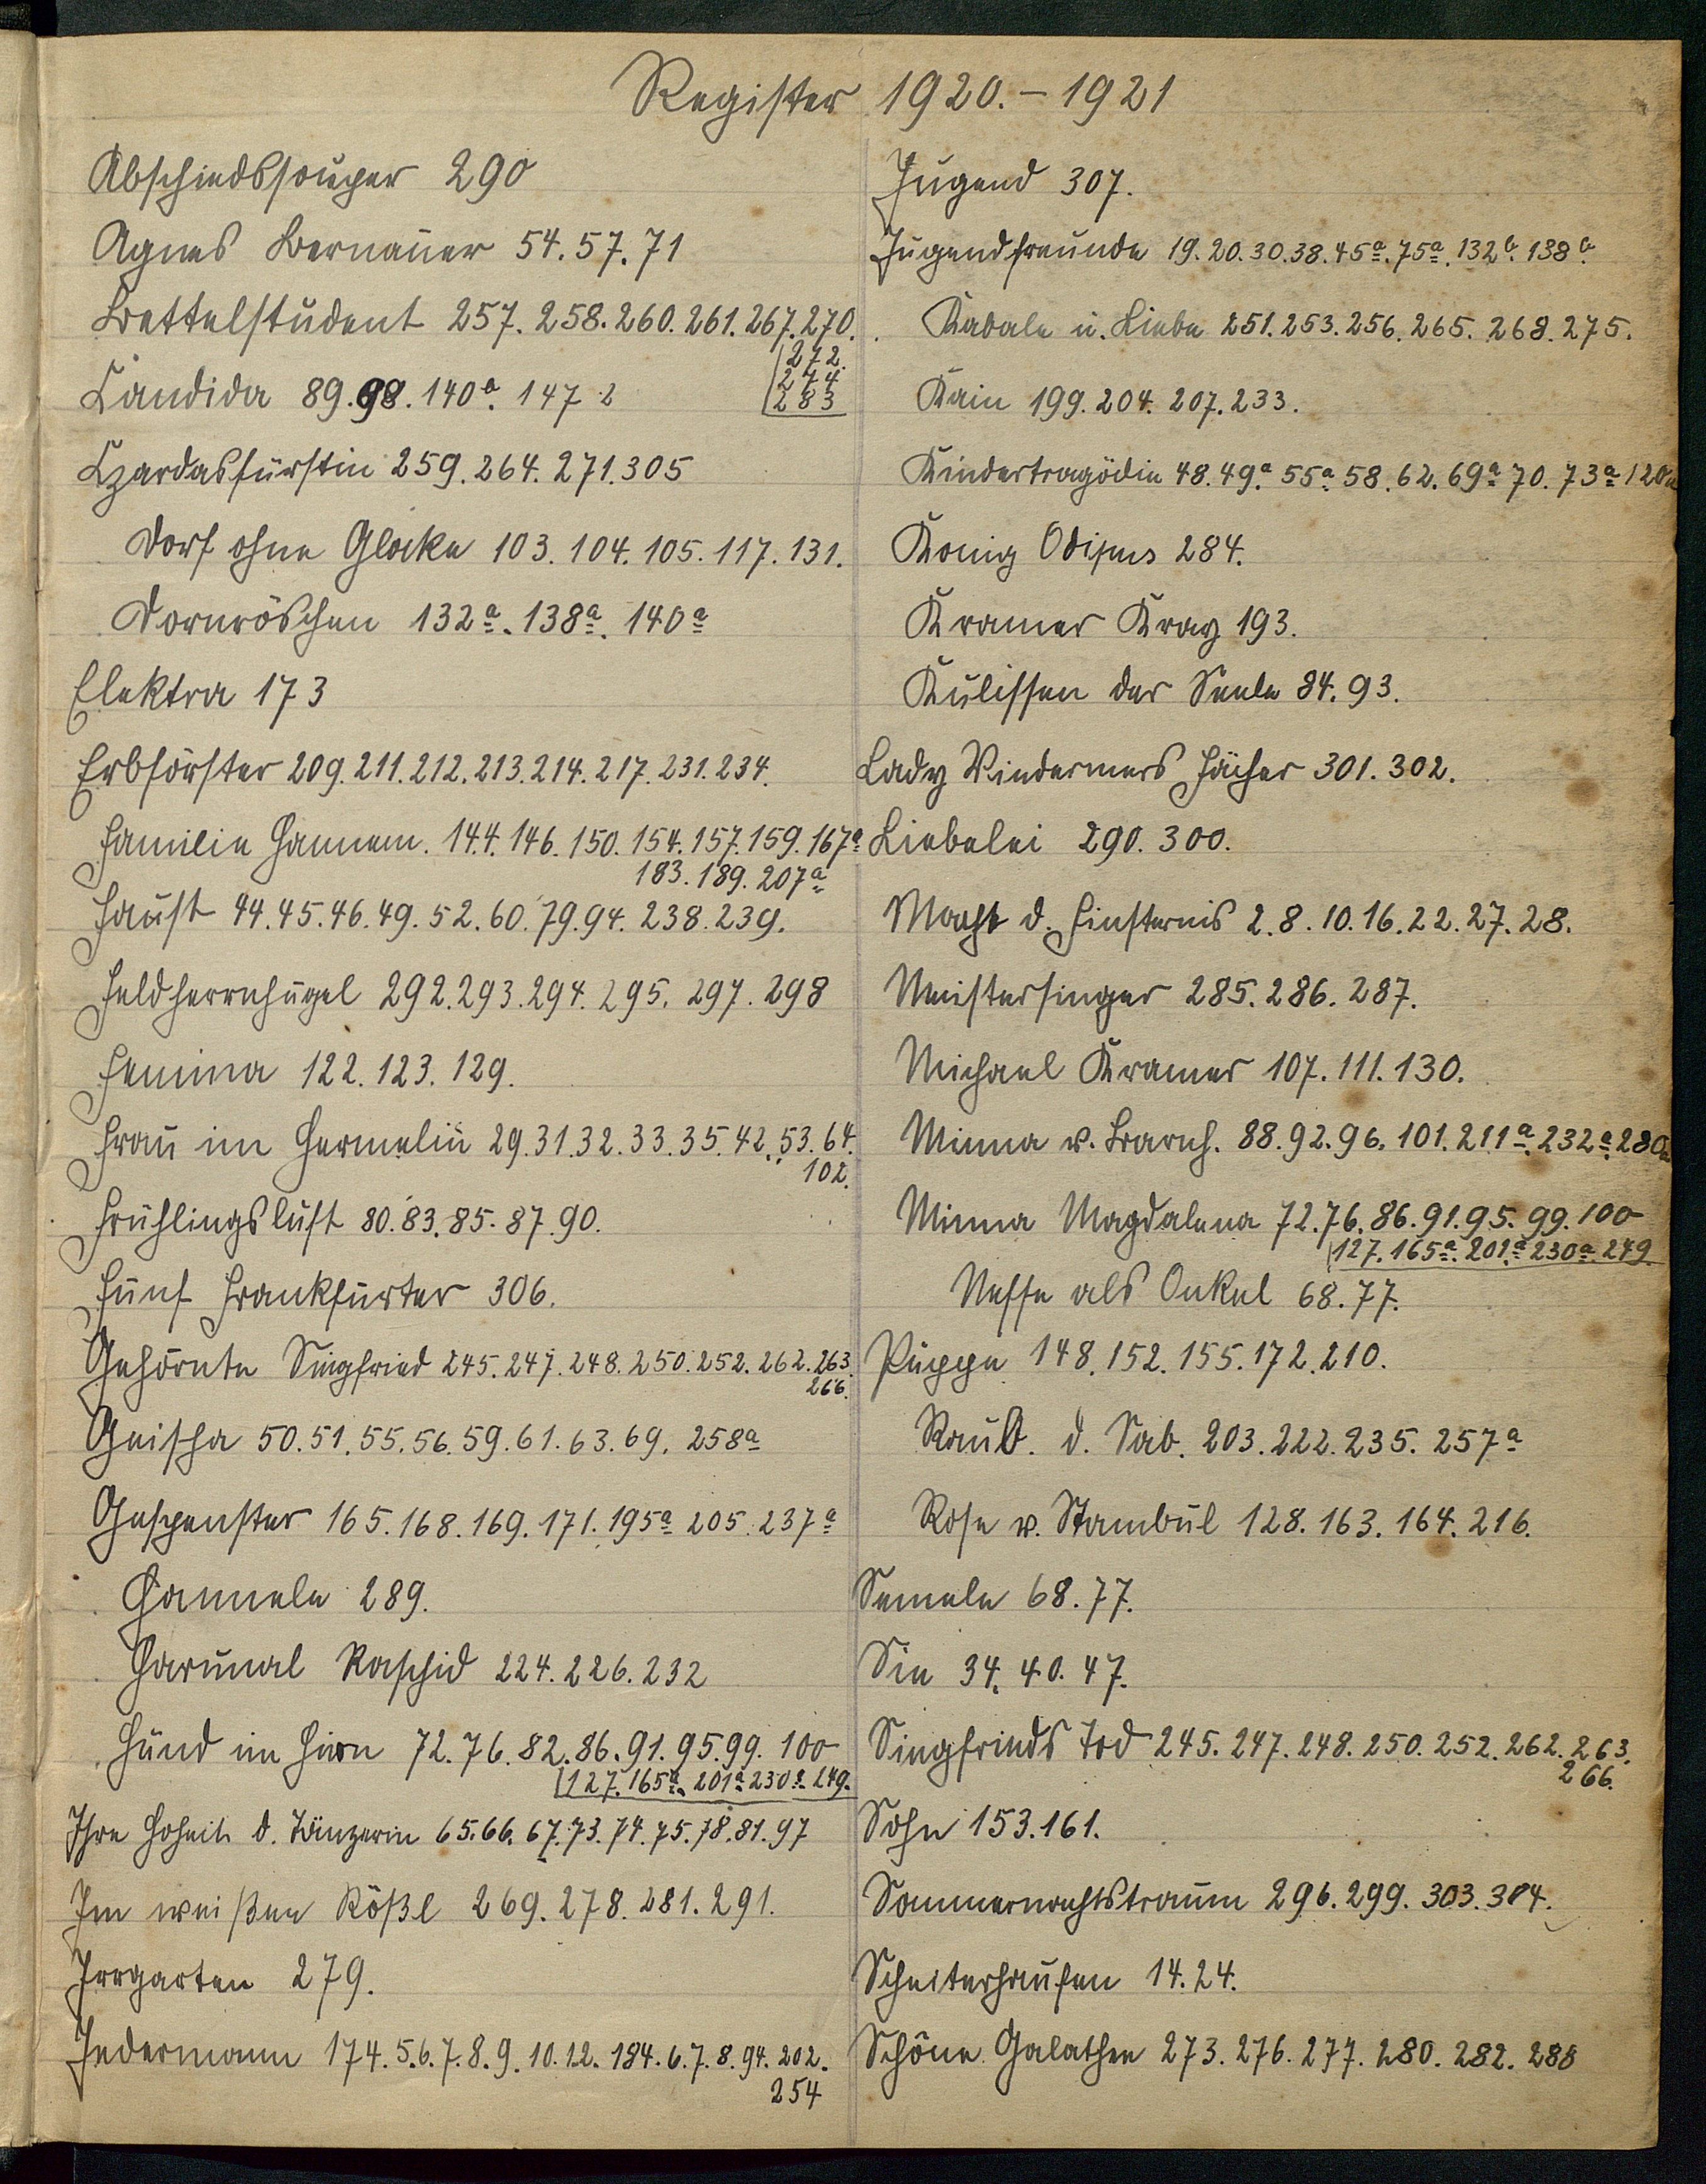 Register 1920.-1921
Abschiedssouper 290
Agnes Bernauer 54.57.71
Bettelstudent 257.258.260.261.267.270.
272.
274
283
Candida 89.98.140a.147
Czardasfürstin 259.264.271.305
Dorf ohne Glocke 103.104.105.117.131.
Dornröschen 132a.138a.140a
Elektra 173
Erbförster 209.211.212.213.214.217.231.234.
Familie Hannem. 144.146.150.154.157.159.167a
183.189.207a
Faust 44.45.46.49.52.60.79.94.238.239.
Feldherrnhügel 292.293.294.295.297.298
Femina 122.123.129.
Frau im Hermelin 29.31.32.33.35.42.53.64.
102.
Frühlingsluft 80.83.85.87.90.
Fünf Frankfurter 306.
Gehörnte Siegfried 245.247.248.250.252.262.263.
266.
Geisha 50.51.55.56.59.61.63.69.258a
Gespenster 165.168.169.171.195a 205.237a
Hannele 289.
Harunal Raschid 224.226.232
Hund im Hirn 72.76.82.86.91.95.99.100
127.165a.201a 230a.249.
Ihre Hoheit d. Tänzerin 65.66.67.73.74.75.78.81.97
Im weißen Rößl 269.278.281.291.
Irrgarten 279.
Jedermann 174.5.6.7.8.9.10.12.184.6.7.8.94.202.
254
Jugend 307.
Jugendfreunde 19.20.30.38.45a.75a.132b.138b.
Kabale u. Liebe 251.253.256.265.268.275.
Kain 199.204.207.233.
Kindertragödie 48.49a.55a.58.62.69a 70.73a 120a
König Ödipus 284.
Kramer Kray 193.
Kulissen der Seele 84.93.
Lady Windermers Fächer 301.302.
Liebelei 290.300.
Macht d. Finsternis 2.8.10.16.22.27.28.
Meistersinger 285.286.287.
Michael Kramer 107.111.130.
Minna v. Barnh. 88.92.96.101.211a.232a.280a
Minna Magdalena 72.76.86.91.95.99.100
127.165a.201a 230a.249.
Neffe als Onkel 68.77.
Puppe 148.152.155.172.210.
Raub. d. Sab. 203.222.235.257a
Rose v. Stambul 128.163.164.216.
Semele 68.77.
Sie 34.40.47.
Siegfrieds Tod 245.247.248.250.252.262.263.
266.
Sohn 153.161.
Sommernachtstraum 296.299.303.304.
Scheiterhaufen 14.24.
Schöne Galathee 273.276.277.280.282.288